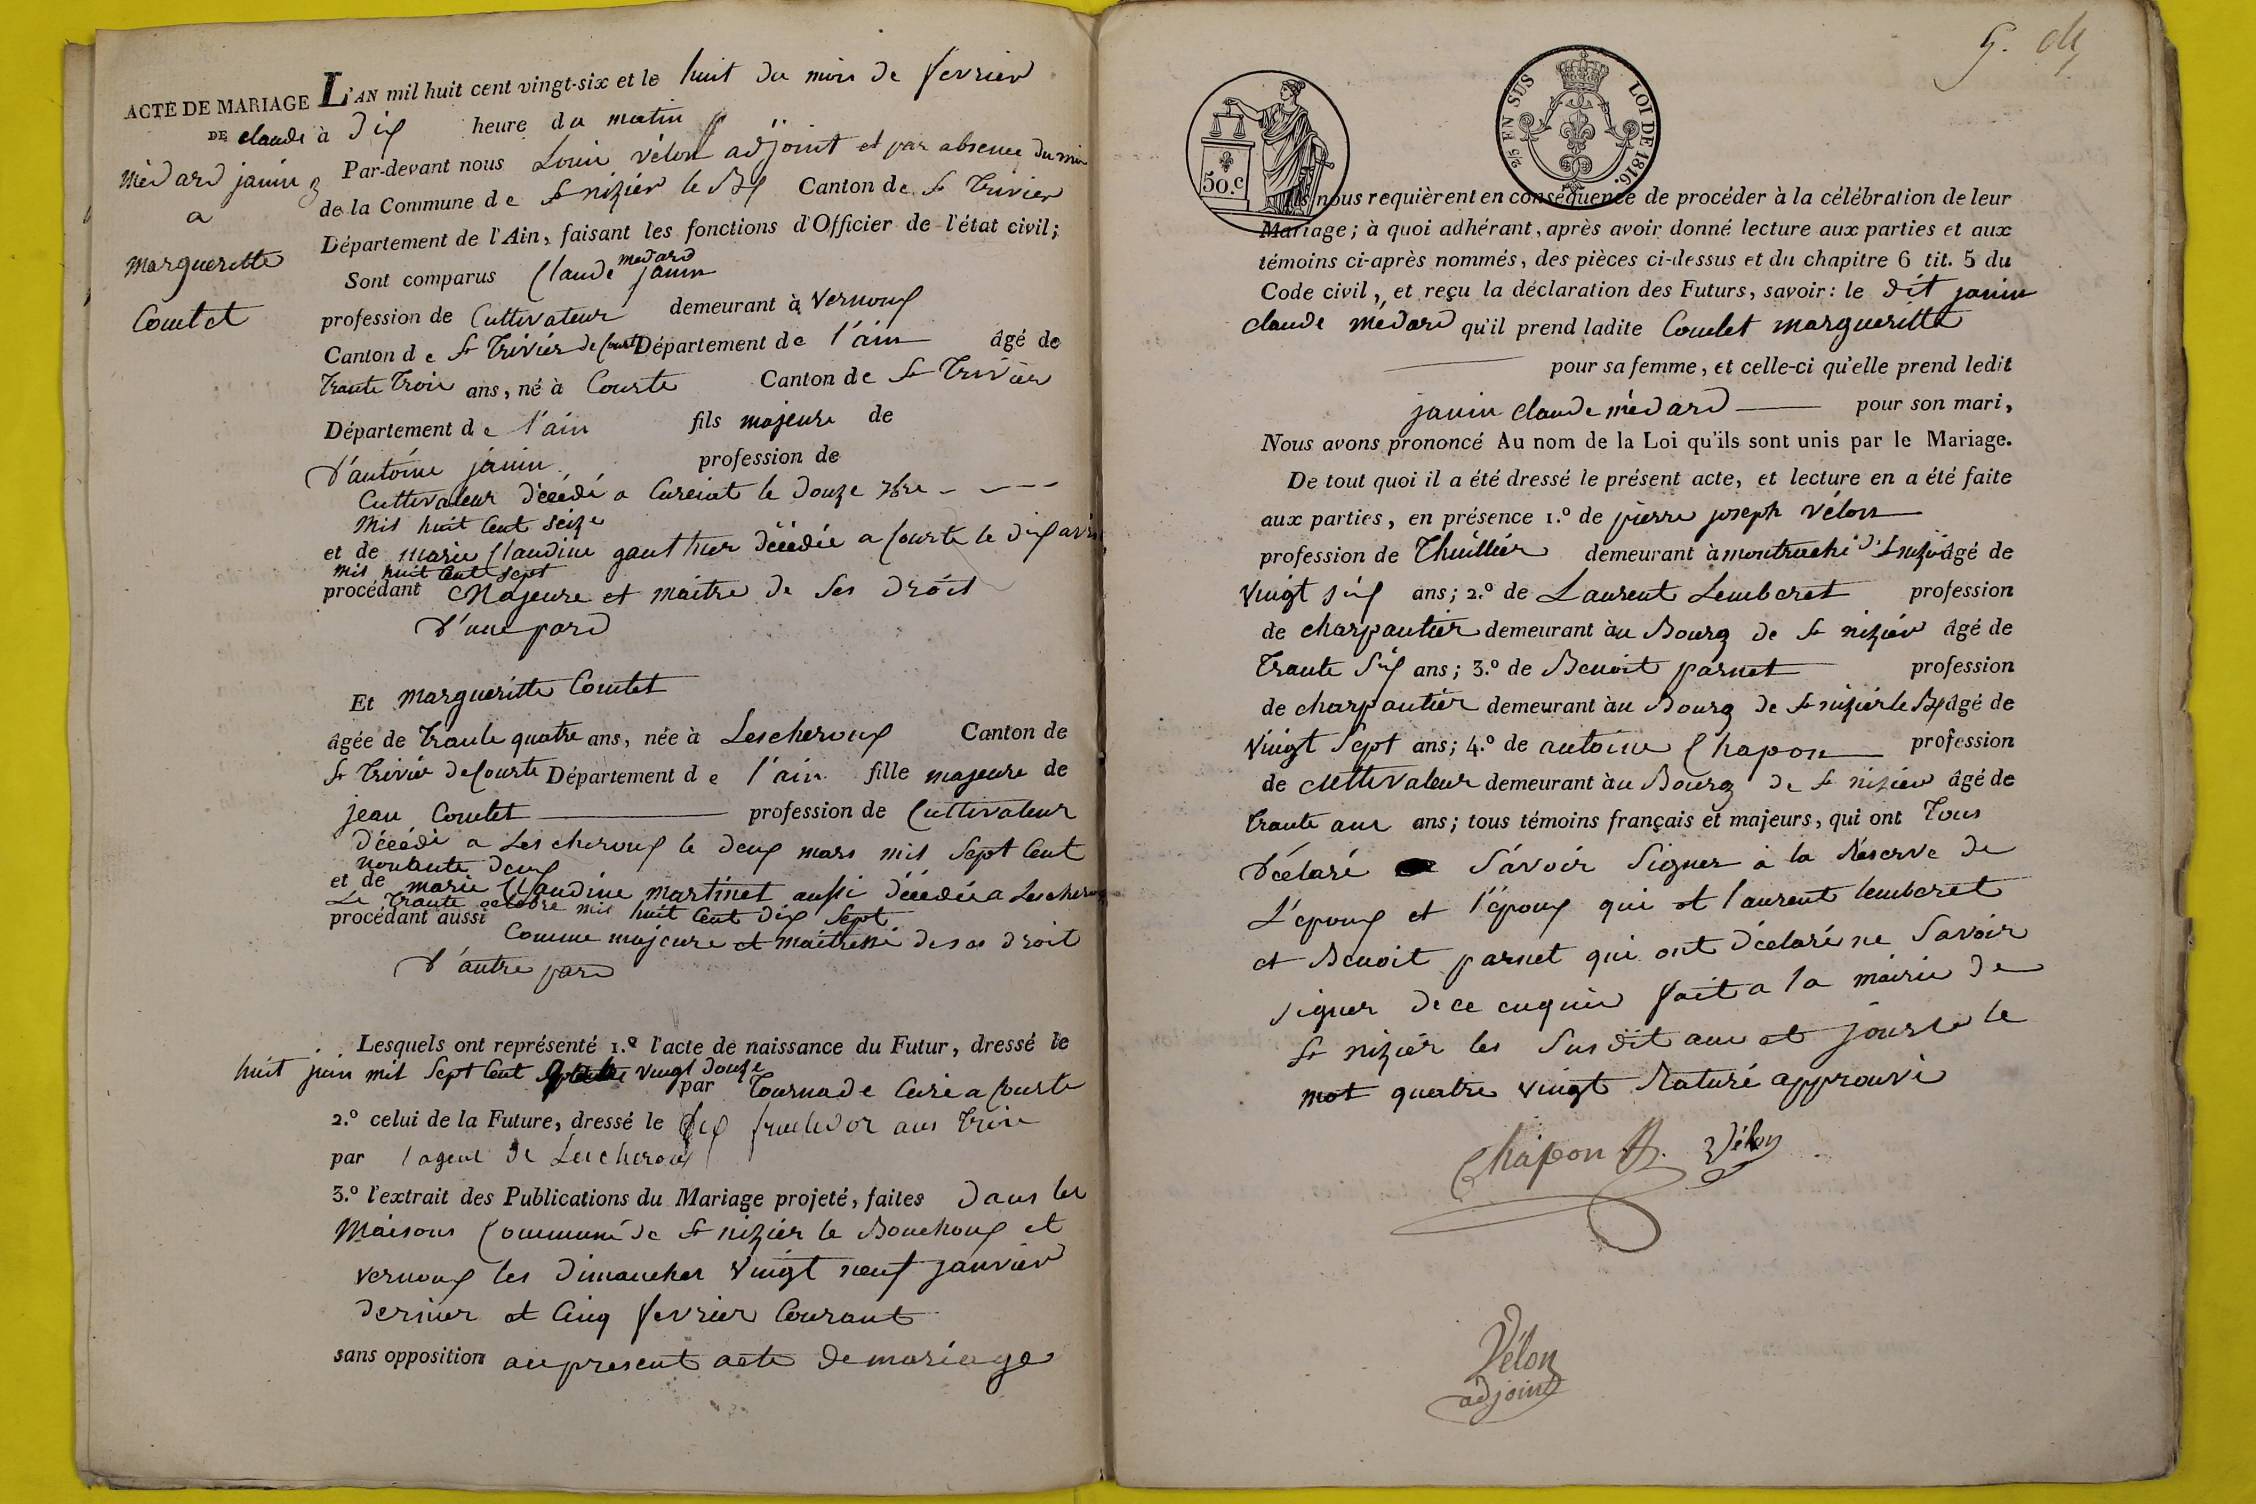 ACTE DE MARIAGE
DE claude
mèdard janin
a
margueritte
Comtet
L'AN mil huit cent vingt-six et le huit du mois de fevrier
à dix heure du matin
Par-devant nous Louis vélon adjoint et par absence du
de la Commune de St nizier le Bx Canton de St Trivier
Département de l'Ain, faisant les fonctions d'Officier de l'état civil;
Sont comparus Claude medard janin
profession de Cultivateur demeurant à vernoux
Canton de St Trivier de Court Département de l'ain âgé de
trante trois ans, né à Courte Canton de St Trivier
Département de l'ain fils majeure de
d'antoine janin profession de
Cultivateur décédé a Curciat le douze 7bre
Mil huit Cent Seize
et de marie Claudine gauthier décédée a Courte le dix avril
mil huit Cent Sept
procédant Majeure et maitre de Ses droit
d'une pard
Et margueritte Comtet
âgée de trante quatre ans, née à Lescheroux Canton de
St Trivié de Courte Département de l'ain fille majeure de
jean Comtet profession de Cultivateur
décédé a Lescheroux le deux mars mil Sept Cent
nonante deux
et de marie Claudine martinet aussi décédée a Lescheroux
Le trante octobre mil huit Cent dix Sept
procédant aussi Comme majeure et maitresse de ses droit
d'autre pard
Lesquels ont représenté 1.º l'acte de naissance du Futur, dressé le
huit juin mil Sept Cent vingt douze
par Tournade Curé a Courte
2.º celui de la Future, dressé le fructidor ans trois
par l'agent de Lescheroux
3.º l'extrait des Publications du Mariage projeté, faites dans les
Maisons Commune de St nizier le Bouchoux et
vernoux les dimanches vingt neuf janvier
dernier et Cinq fevrier Courant
sans opposition au present acte de mariage
5.
50.C
2/5 EN SUS LOI DE 1816.
Ils nous requièrent en conséquence de procéder à la célébration de leur
Mariage; à quoi adhérant, après avoir donné lecture aux parties et aux
témoins ci-après nommés, des pièces ci-dessus et du chapitre 6 tit. 5 du
Code civil, et reçu la déclaration des Futurs, savoir: le dit janin
claude mèdard qu'il prend ladite Comtet margueritte
pour sa femme, et celle-ci qu'elle prend ledit
janin claude mèdard pour son mari,
Nous avons prononcé Au nom de la Loi qu'ils sont unis par le Mariage.
De tout quoi il a été dressé le présent acte, et lecture en a été faite
aux parties, en présence 1.º de pierre joseph vélon
profession de Thuillier demeurant à montrachi d. St nizié âgé de
vingt six ans; 2.º de Laurent Lemberet profession
de charpantier demeurant àu Bourg de St nizier âgé de
trante Six ans; 3.º de Benoit parnet profession
de charpantier demeurant àu Bourg de St nizier le Bx âgé de
vingt Sept ans; 4.º de antoine Chapon profession
de cultivateur demeurant àu Bourg de St nizier âgé de
trante ans; tous témoins français et majeurs, qui ont Tous
déclaré Savoir Signer a la Réserve de
L'epoux et l'épous qui et laurent lemberet
et Benoit parnet qui ont déclaré ne Savoir
signer de ce enquis fait a la mairie de
St nizier les Susdit ans et jours le
mot quatre vingt Raturé approuvé
Chapon A. Vélon
Vélon
adjoint